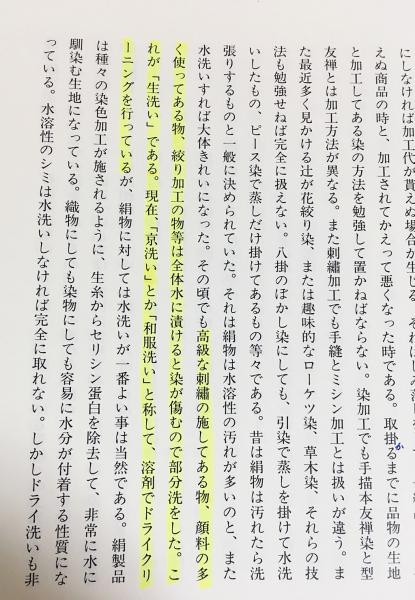 にしなければ加工代が貰えぬ場合が生じる。それはしみ落
えぬ商品の時と、加工されてかえって悪くなった時である。取掛るまでに品物の生地
か
と加工してある染の方法を勉強して置かねばならない。染加工でも手描本友禅染と型
友禅とは加工方法が異なる。また刺繡加工でも手縫とミシン加工とは扱いが違う。ま
た最近多く見かける辻が花絞り染、または趣味的なローケツ染、草木染、それらの技
法も勉強せねば完全に扱えない。八掛のぼかし染にしても、引染で蒸しを掛けて水洗
いしたもの、ピース染で蒸しだけ掛けてあるもの等々である。昔は絹物は汚れたら洗
張りするものと一般に決められていた。それは絹物は水溶性の汚れが多いのと、また
水洗いすれば大体きれいになった。その頃でも高級な刺繡の施してある物、顔料の多
く使ってある物、絞り加工の物等は全体水に漬けると染が傷むので部分洗をした。こ
れが「生洗い」である。現在、「京洗い」とか「和服洗い」と称して、溶剤でドライクリ
ーニングを行っているが、絹物に対しては水洗いが一番よい事は当然である。絹製品
は種々の染色加工が施されるように、生糸からセリシン蛋白を除去して、非常に水に
馴染む生地になっている。織物にしても染物にしても容易に水分が付着する性質にな
っている。水溶性のシミは水洗いしなければ完全に取れない。しかしドライ洗いも非